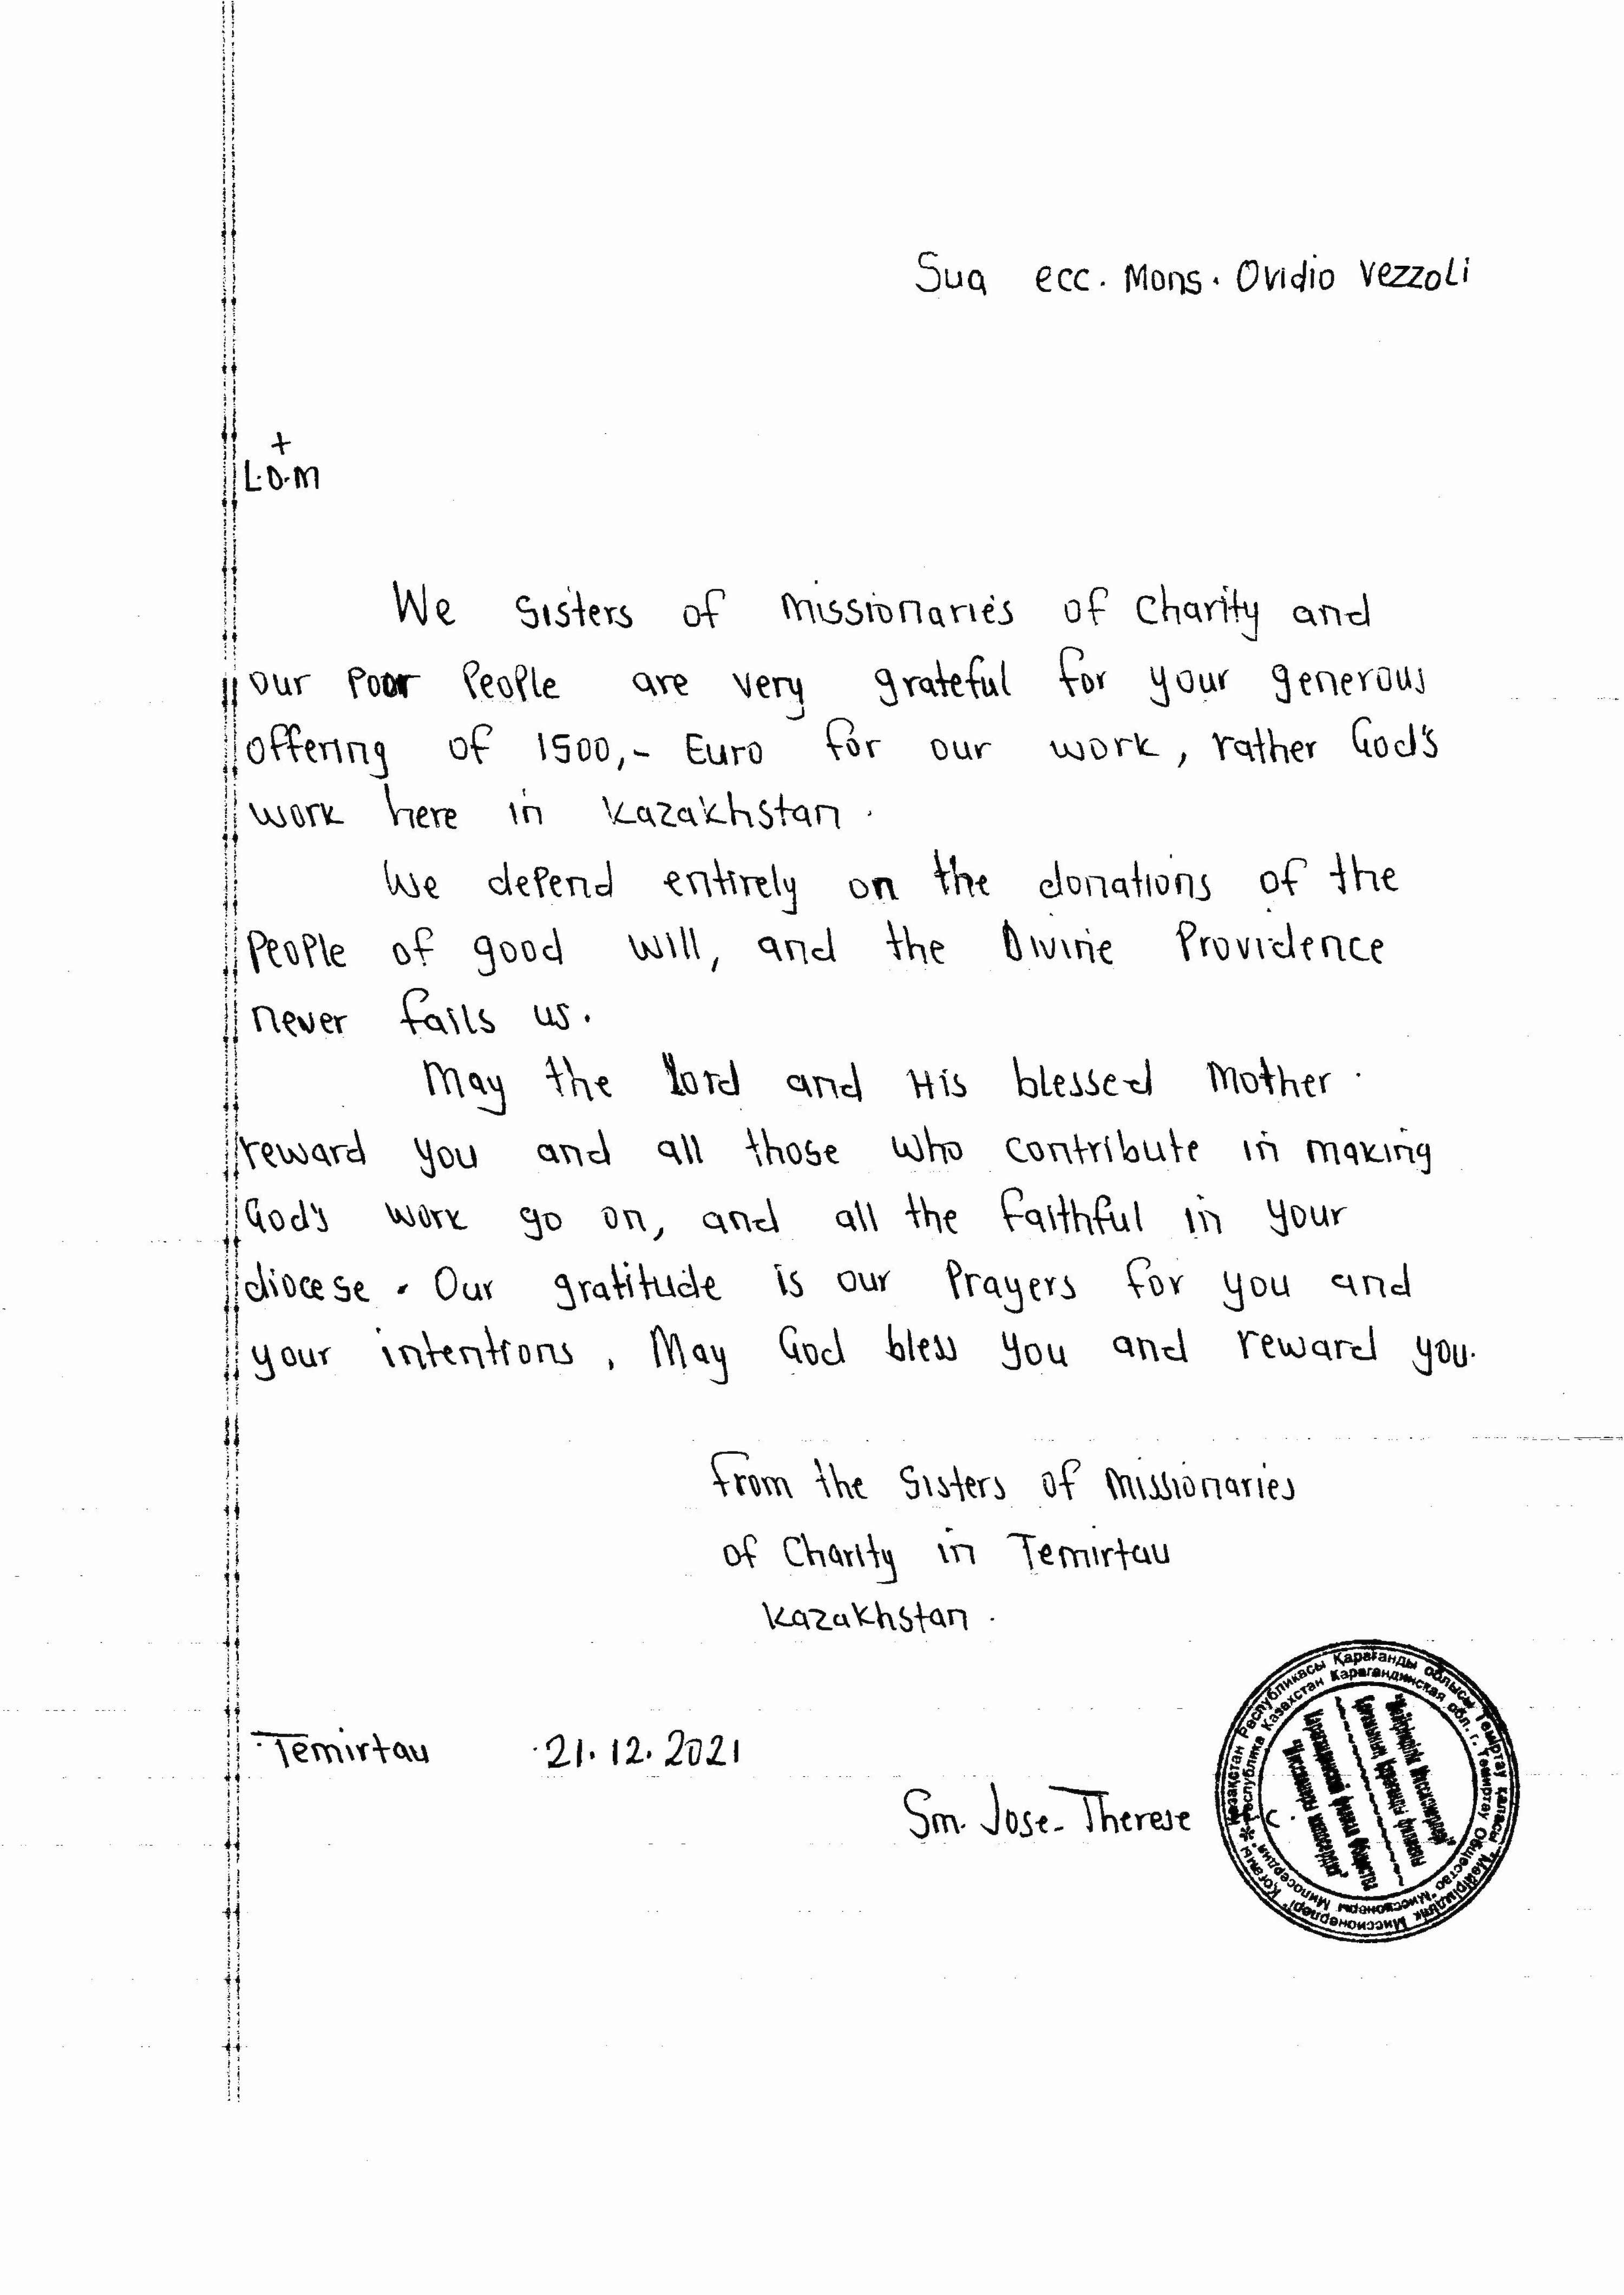 Sua ecc. Mons. Ovidio Vezzoli
+
L.D.M
We Sisters of Missionaries of Charity and
our Poor People are very grateful for your generous
offering of 1500,- Euro for our work, rather God's
work here in Kazakhstan.
We depend entirely on the donations of the
People of good will, and the Divine Providence
never fails us.
May the Lord and His blessed Mother
reward you and all those who contribute in making
God's work go on, and all the faithful in your
diocese. Our gratitude is our Prayers for you and
your intentions. May God bless you and reward you.
From the Sisters of Missionaries
of Charity in Temirtau
Kazakhstan.
Temirtau 21.12.2021
Sm. Jose-Therese
Қазақстан Республикасы Қарағанды облысы Теміртау қаласы "Мейірімділік Миссионерлері" Қоғамы
Республика Казахстан Карагандинская обл. г. Темиртау Общество "Миссионеры Милосердия"